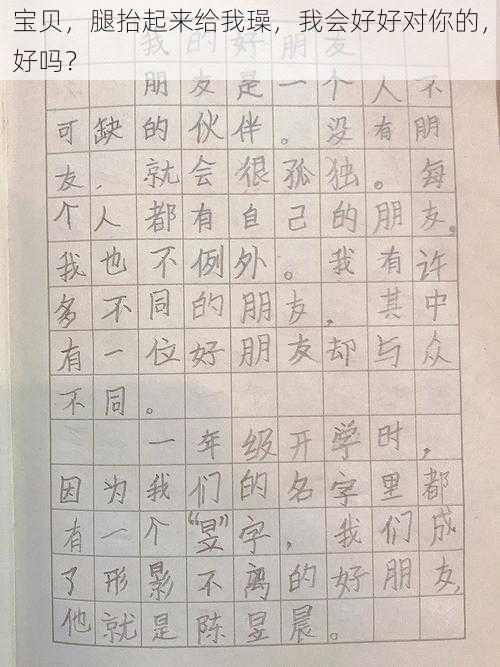 宝贝，腿抬起来给我璪，我会好好对你的，
好吗？
我的好朋友
朋友是一个人不
可缺的伙伴。没有朋
友，就会很孤独。每
个人都有自己的朋友。
我也不例外。我有许
多不同的朋友，其中
有一位好朋友却与众
不同。
一年级开学时，
因为我们的名字里都
有一个“昱”字，我们成
了形影不离的好朋友，
他就是陈昱晨。